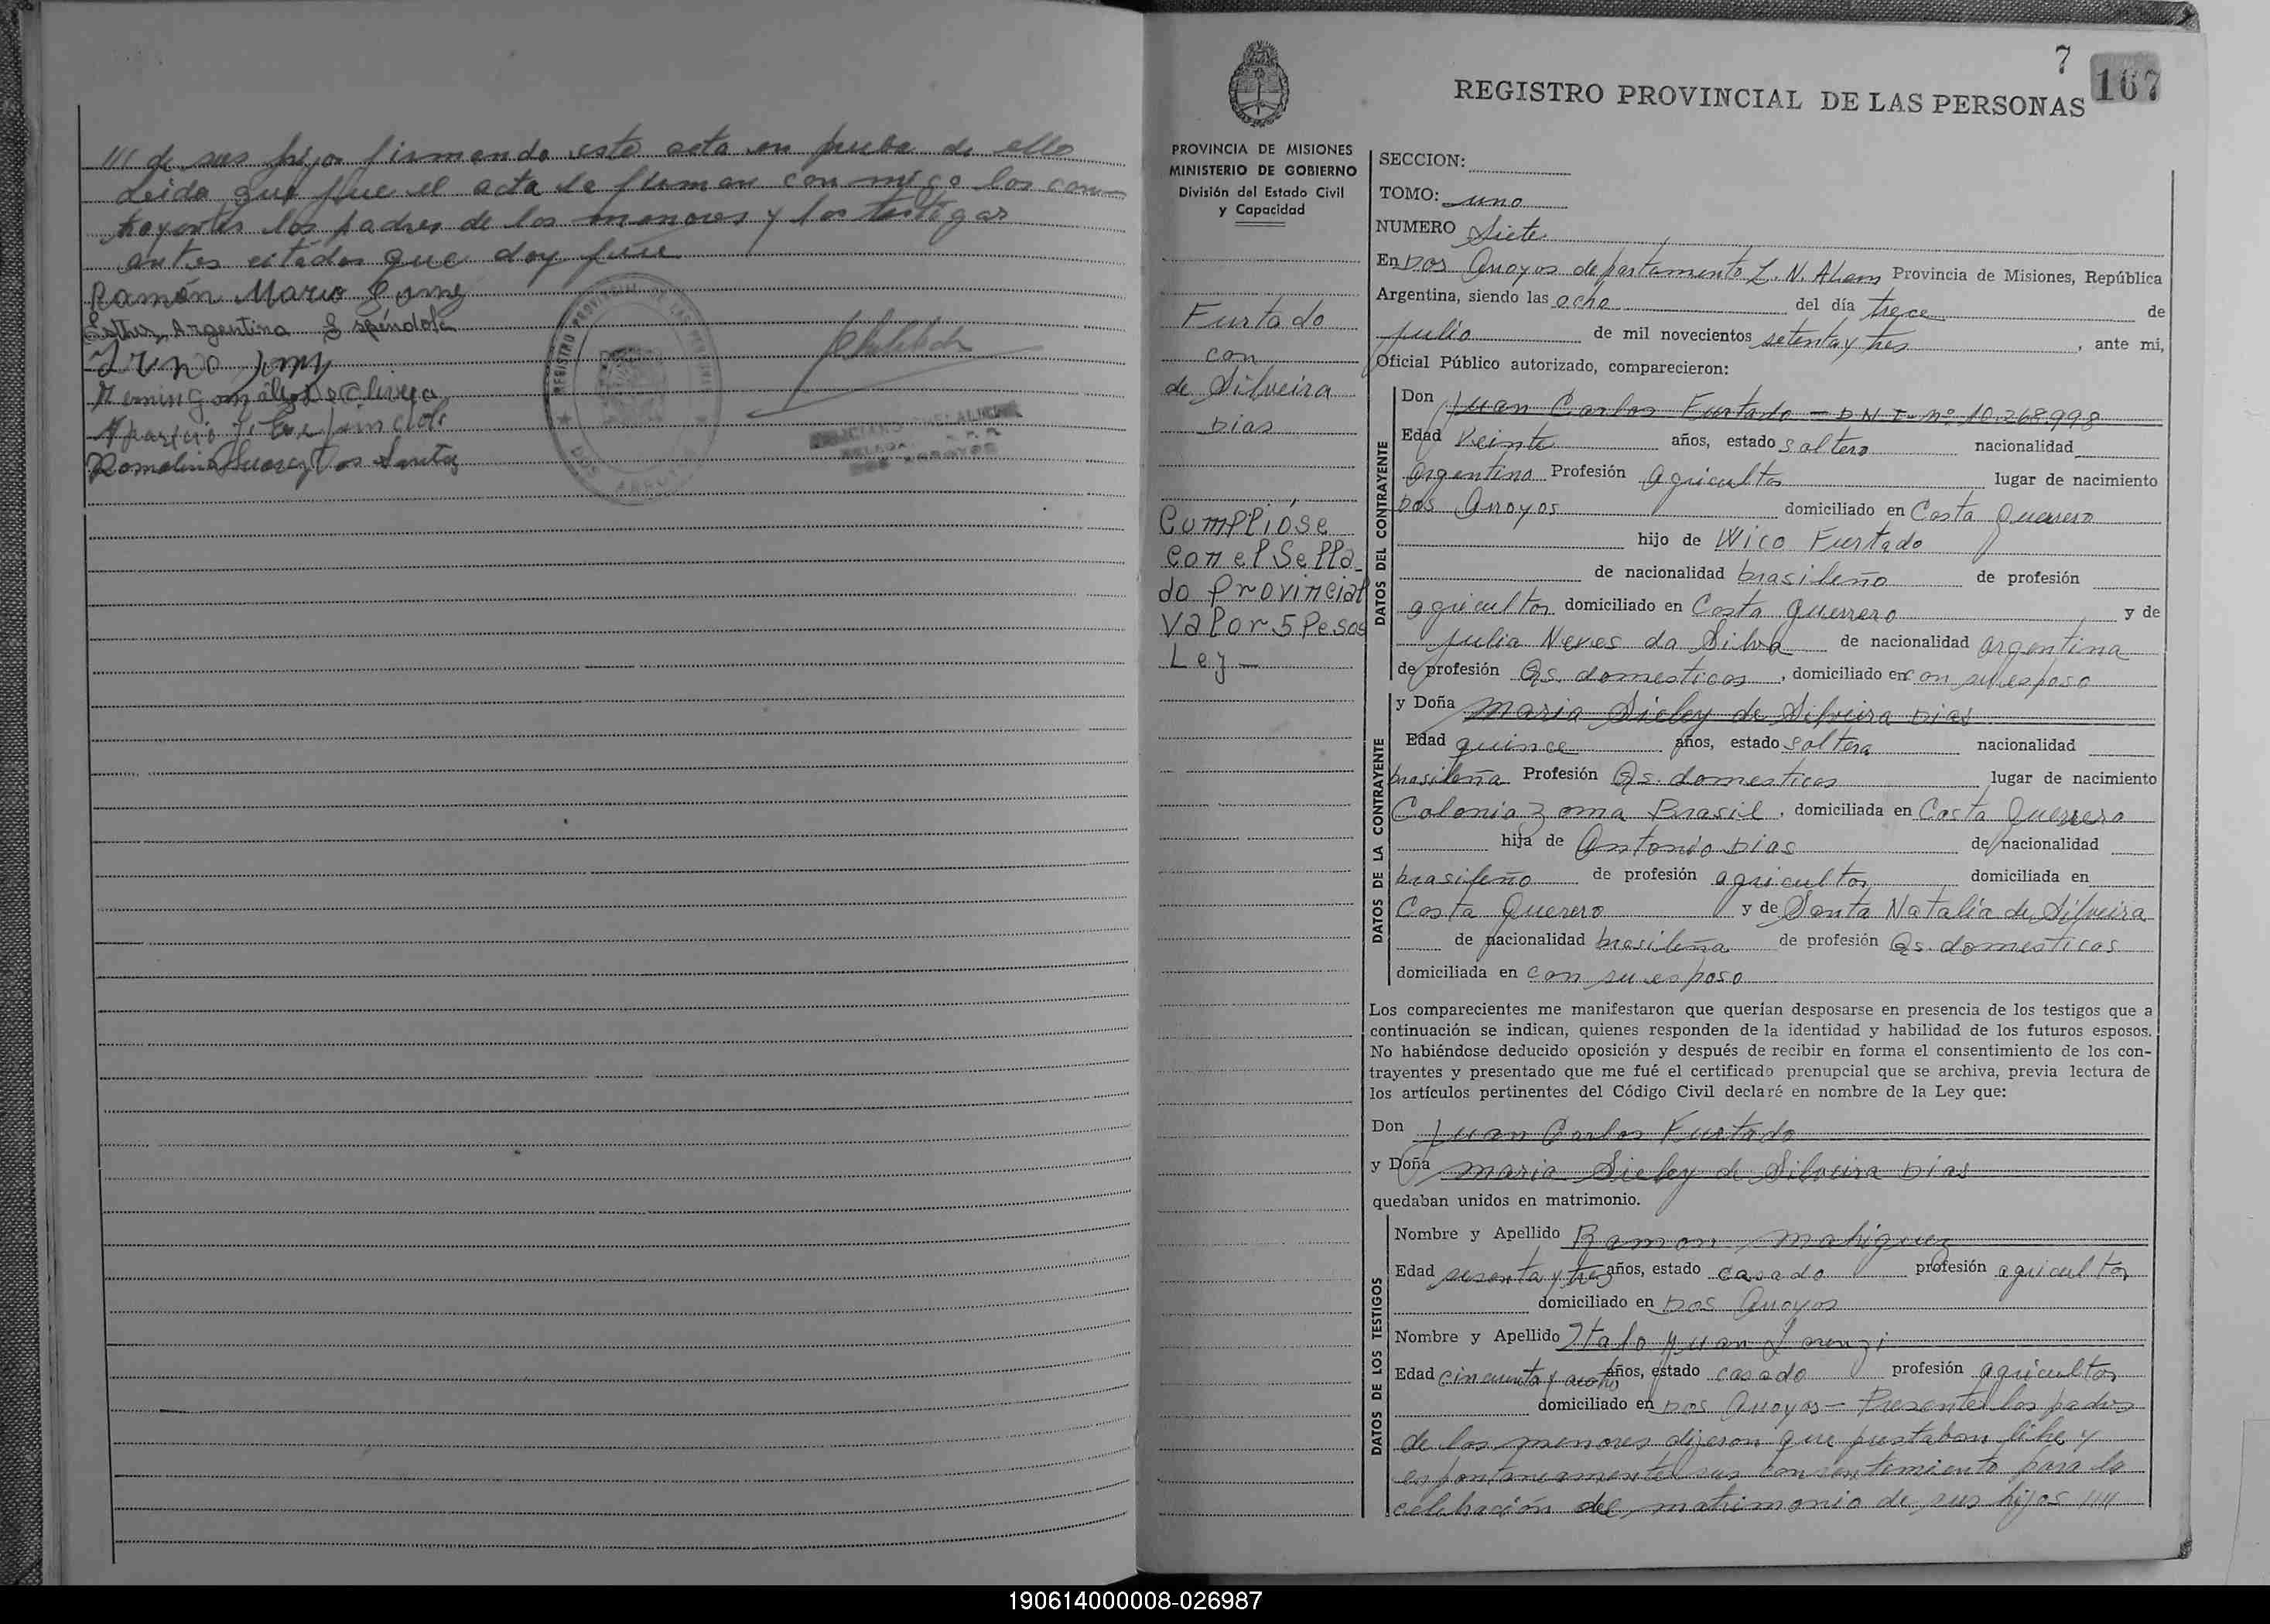 /// de sus hijos firmando esta acta en prueba de ello
Leida que fue el acta la firman con migo los con-
trayentes los padres de los menores y los testigos
antes citados que doy fuie
Ramón Mario Gomez
Esther Argentina Espéndola
REGISTRO PROVINCIAL DE LAS PERSONAS
DOS ARROYOS
7
167
REGISTRO PROVINCIAL DE LAS PERSONAS
PROVINCIA DE MISIONES
MINISTERIO DE GOBIERNO
División del Estado Civil
y Capacidad
Furtado
con
de Silveira
Dias
Cumplióse
con el Sella-
do Provincial
Valor 5 Pesos
Ley —
SECCION:
TOMO: uno
NUMERO Siete
En Dos Arroyos departamento L. N. Alem Provincia de Misiones, República
Argentina, siendo las ocho del día trece de
julio de mil novecientos setenta y tres, ante mi,
Oficial Público autorizado, comparecieron:
DATOS DEL CONTRAYENTE
Don Juan Carlos Furtado — D.N.I. Nº 10.268.998
Edad veinte años, estado soltero nacionalidad
argentino Profesión agricultor lugar de nacimiento
Dos Arroyos domiciliado en Costa Guerrero
hijo de Wico Furtado
de nacionalidad brasileño de profesión
agricultor domiciliado en Costa Guerrero y de
Julia Neves da Silva de nacionalidad argentina
de profesión Qs. domesticos, domiciliado en con su esposo
DATOS DE LA CONTRAYENTE
y Doña Maria Sieley de Silveira Dias
Edad quince años, estado soltera nacionalidad
brasileña Profesión Qs. domesticos lugar de nacimiento
Colonia Zoma Brasil, domiciliada en Costa Guerrero
hija de Antonio Dias de nacionalidad
brasileño de profesión agricultor domiciliada en
Costa Guerero y de Santa Natalia de Silveira
de nacionalidad brasileña de profesión Qs. domesticos
domiciliada en con su esposo
Los comparecientes me manifestaron que querían desposarse en presencia de los testigos que a
continuación se indican, quienes responden de la identidad y habilidad de los futuros esposos.
No habiéndose deducido oposición y después de recibir en forma el consentimiento de los con-
trayentes y presentado que me fué el certificado prenupcial que se archiva, previa lectura de
los artículos pertinentes del Código Civil declaré en nombre de la Ley que:
Don Juan Carlos Furtado
y Doña Maria Sieley de Silveira Dias
quedaban unidos en matrimonio.
DATOS DE LOS TESTIGOS
Nombre y Apellido Ramon Mahiguez
Edad sesenta y tres años, estado casado profesión agricultor
domiciliado en Dos Arroyos
Nombre y Apellido Italo Juan Lorenzi
Edad cincuenta y ocho años, estado casado profesión agricultor
domiciliado en Dos Arroyos — Presente los padres
de los menores dijeron que prestaban libre y
espontaneamente sus consentimiento para la
celebración del matrimonio de sus hijos ////
190614000008-026987